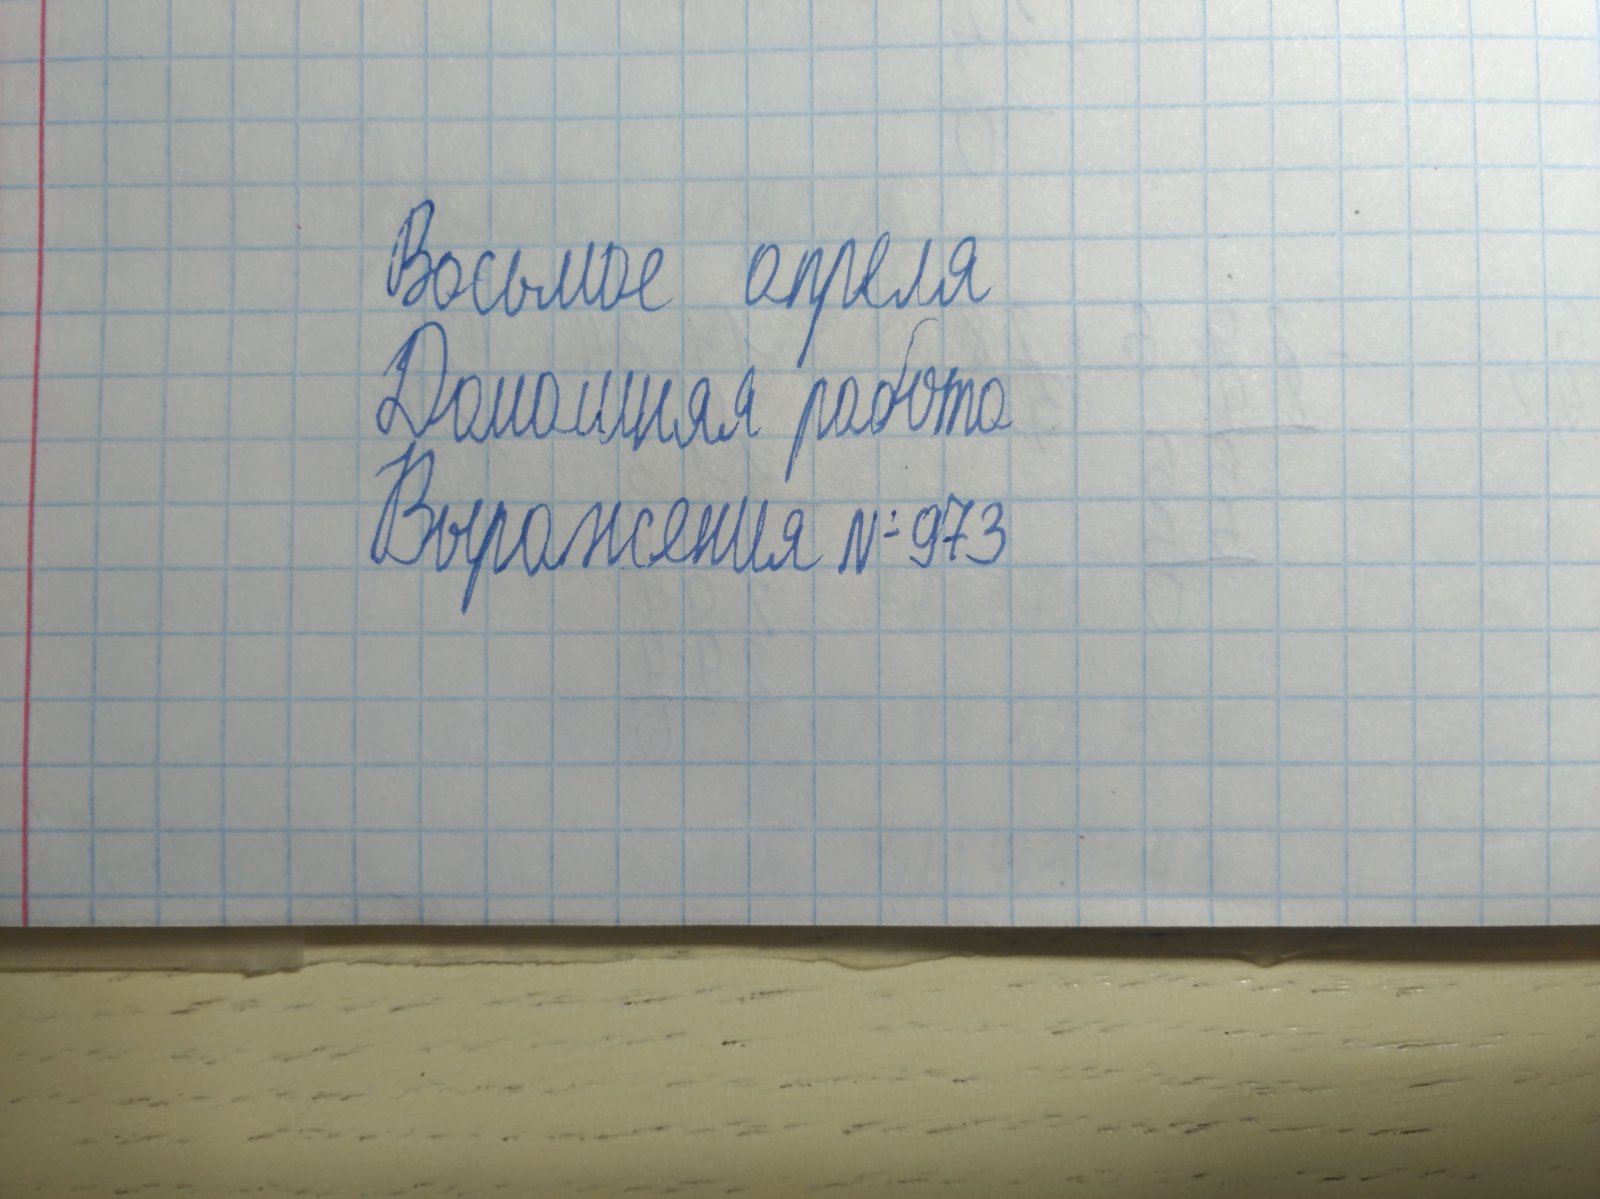 Восьмое апреля
Домашняя работа
Выражения №973